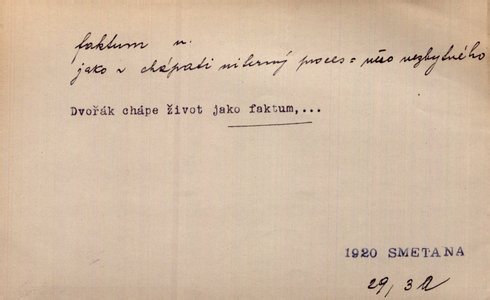 faktum n.
jako chápati proces = něco nezbytného
Dvořák chápe život jako faktum,...
1920 SMETANA
29, 3